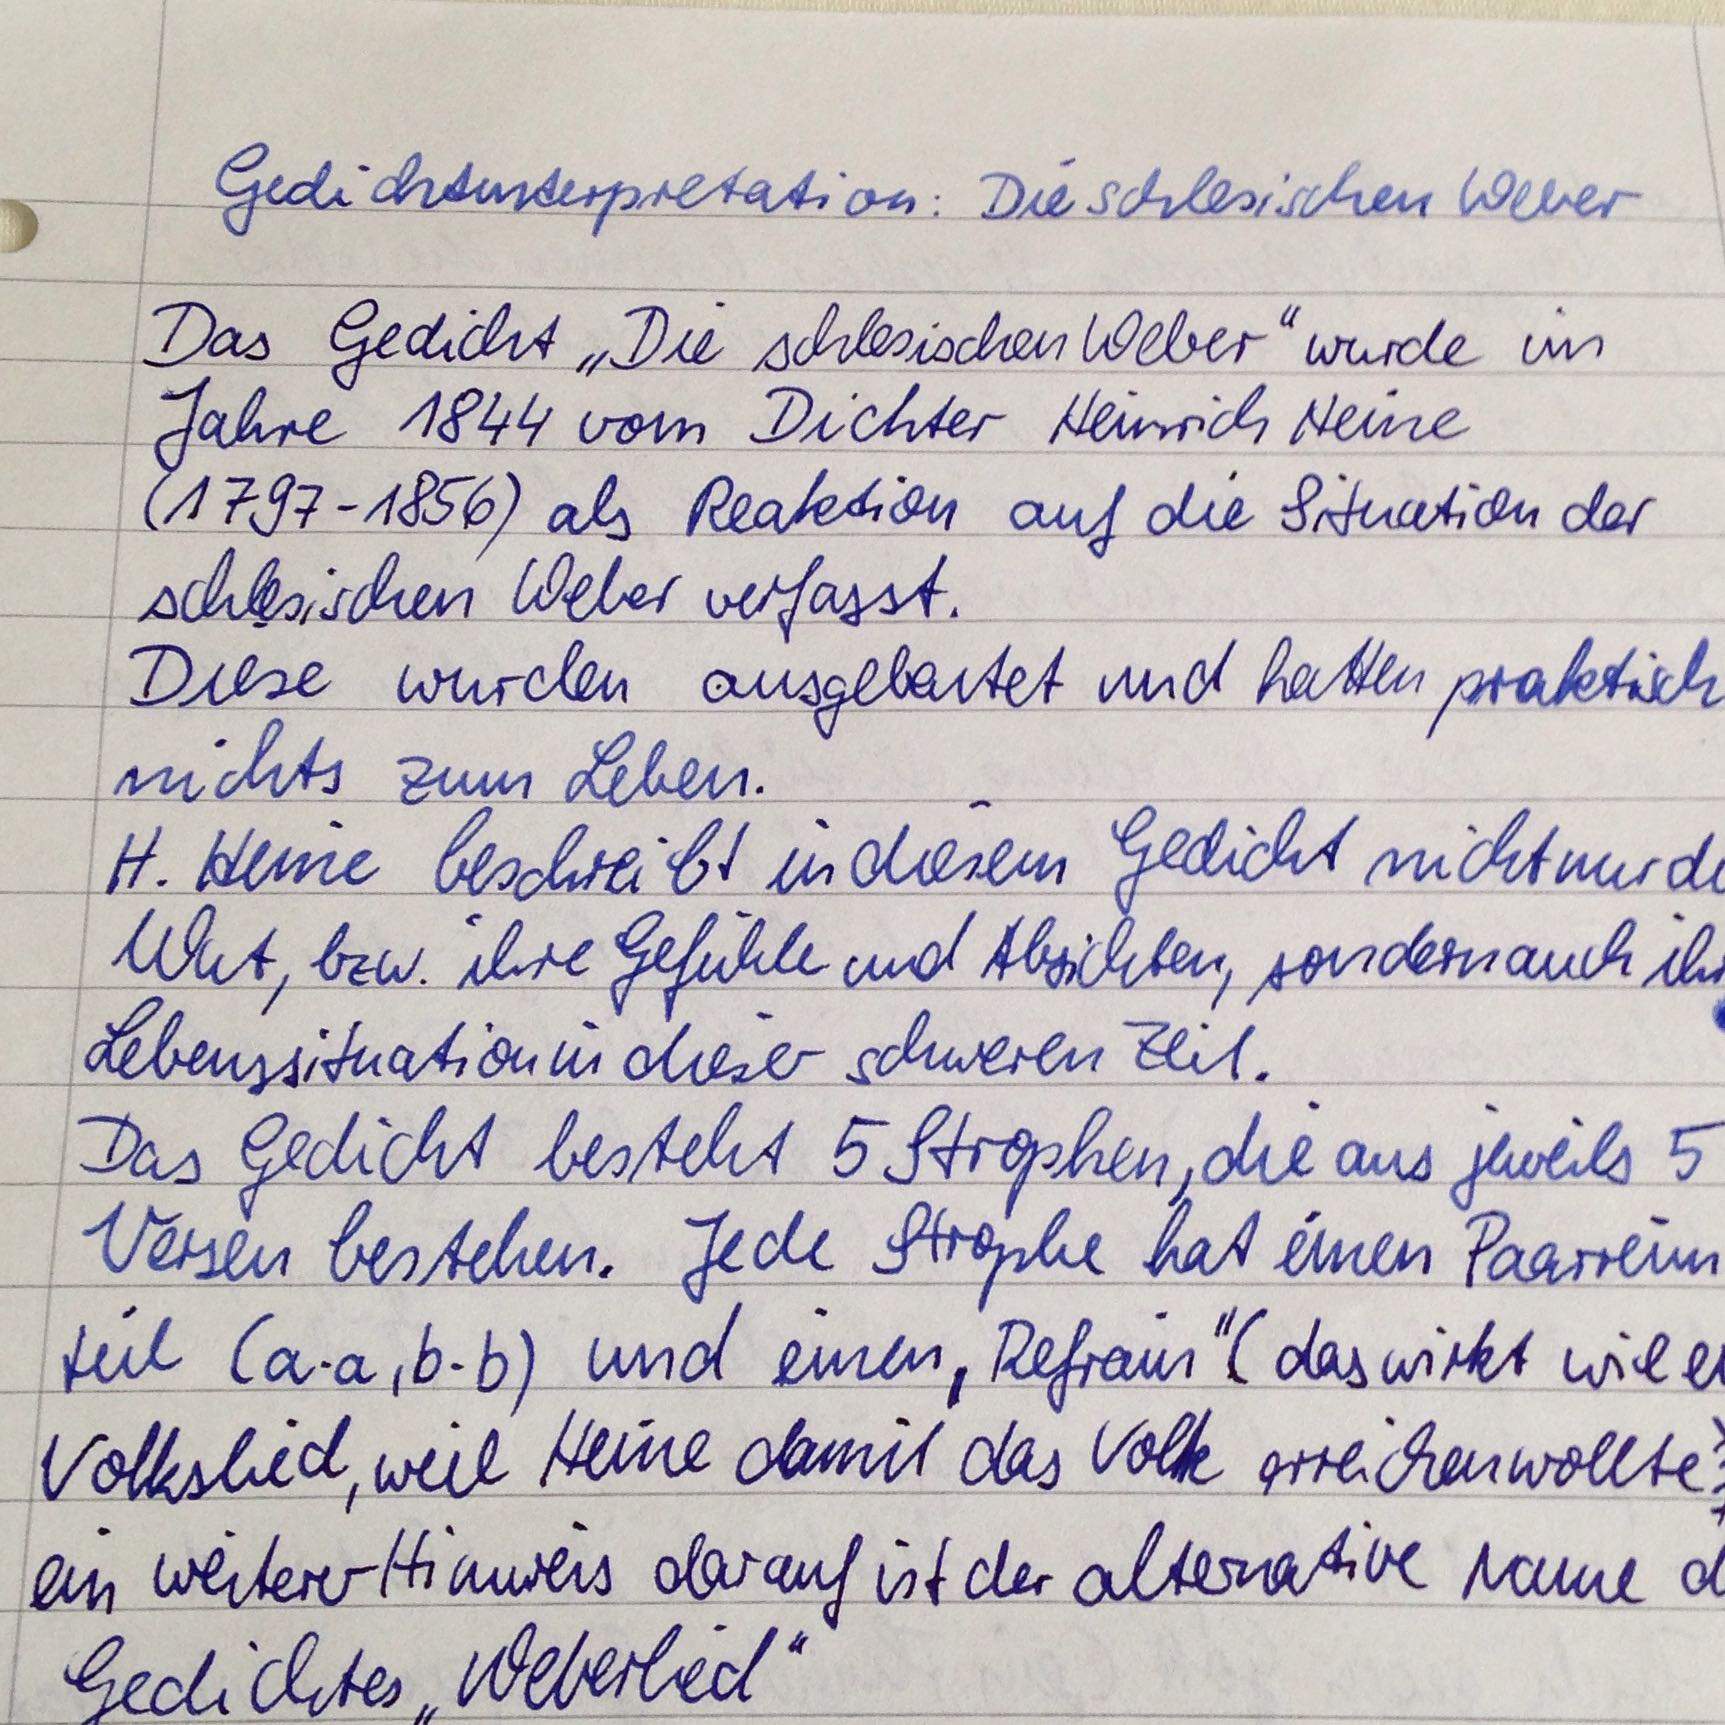 Gedichtinterpretation: Die schlesischen Weber
Das Gedicht „Die schlesischen Weber“ wurde im
Jahre 1844 vom Dichter Heinrich Heine
(1797-1856) als Reaktion auf die Situation der
schlesischen Weber verfasst.
Diese wurden ausgebeutet und hatten praktisch
nichts zum Leben.
H. Heine beschreibt in diesem Gedicht nicht nur
Wut, bzw. ihre Gefühle und Absichten, sondern auch
Lebenssituation in dieser schweren Zeit.
Das Gedicht besteht 5 Strophen, die aus jeweils 5
Versen bestehen. Jede Strophe hat einen Paarreim
teil (a-a, b-b) und einen „Refrain“ (das wirkt wie
Volkslied, weil Heine damit das Volk erreichen wollte
ein weiterer Hinweis darauf ist der alternative Name
Gedichtes „Weberlied“